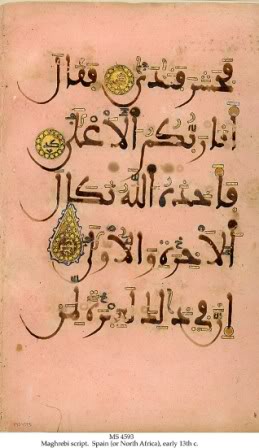 فحشر فنادى فقال
أنا ربكم الأعلى
فأخذه الله نكال
الآخرة والأولى
إن في ذلك لعبرة لمن
MS 4593
Maghrebi script. Spain (or North Africa), early 13th c.